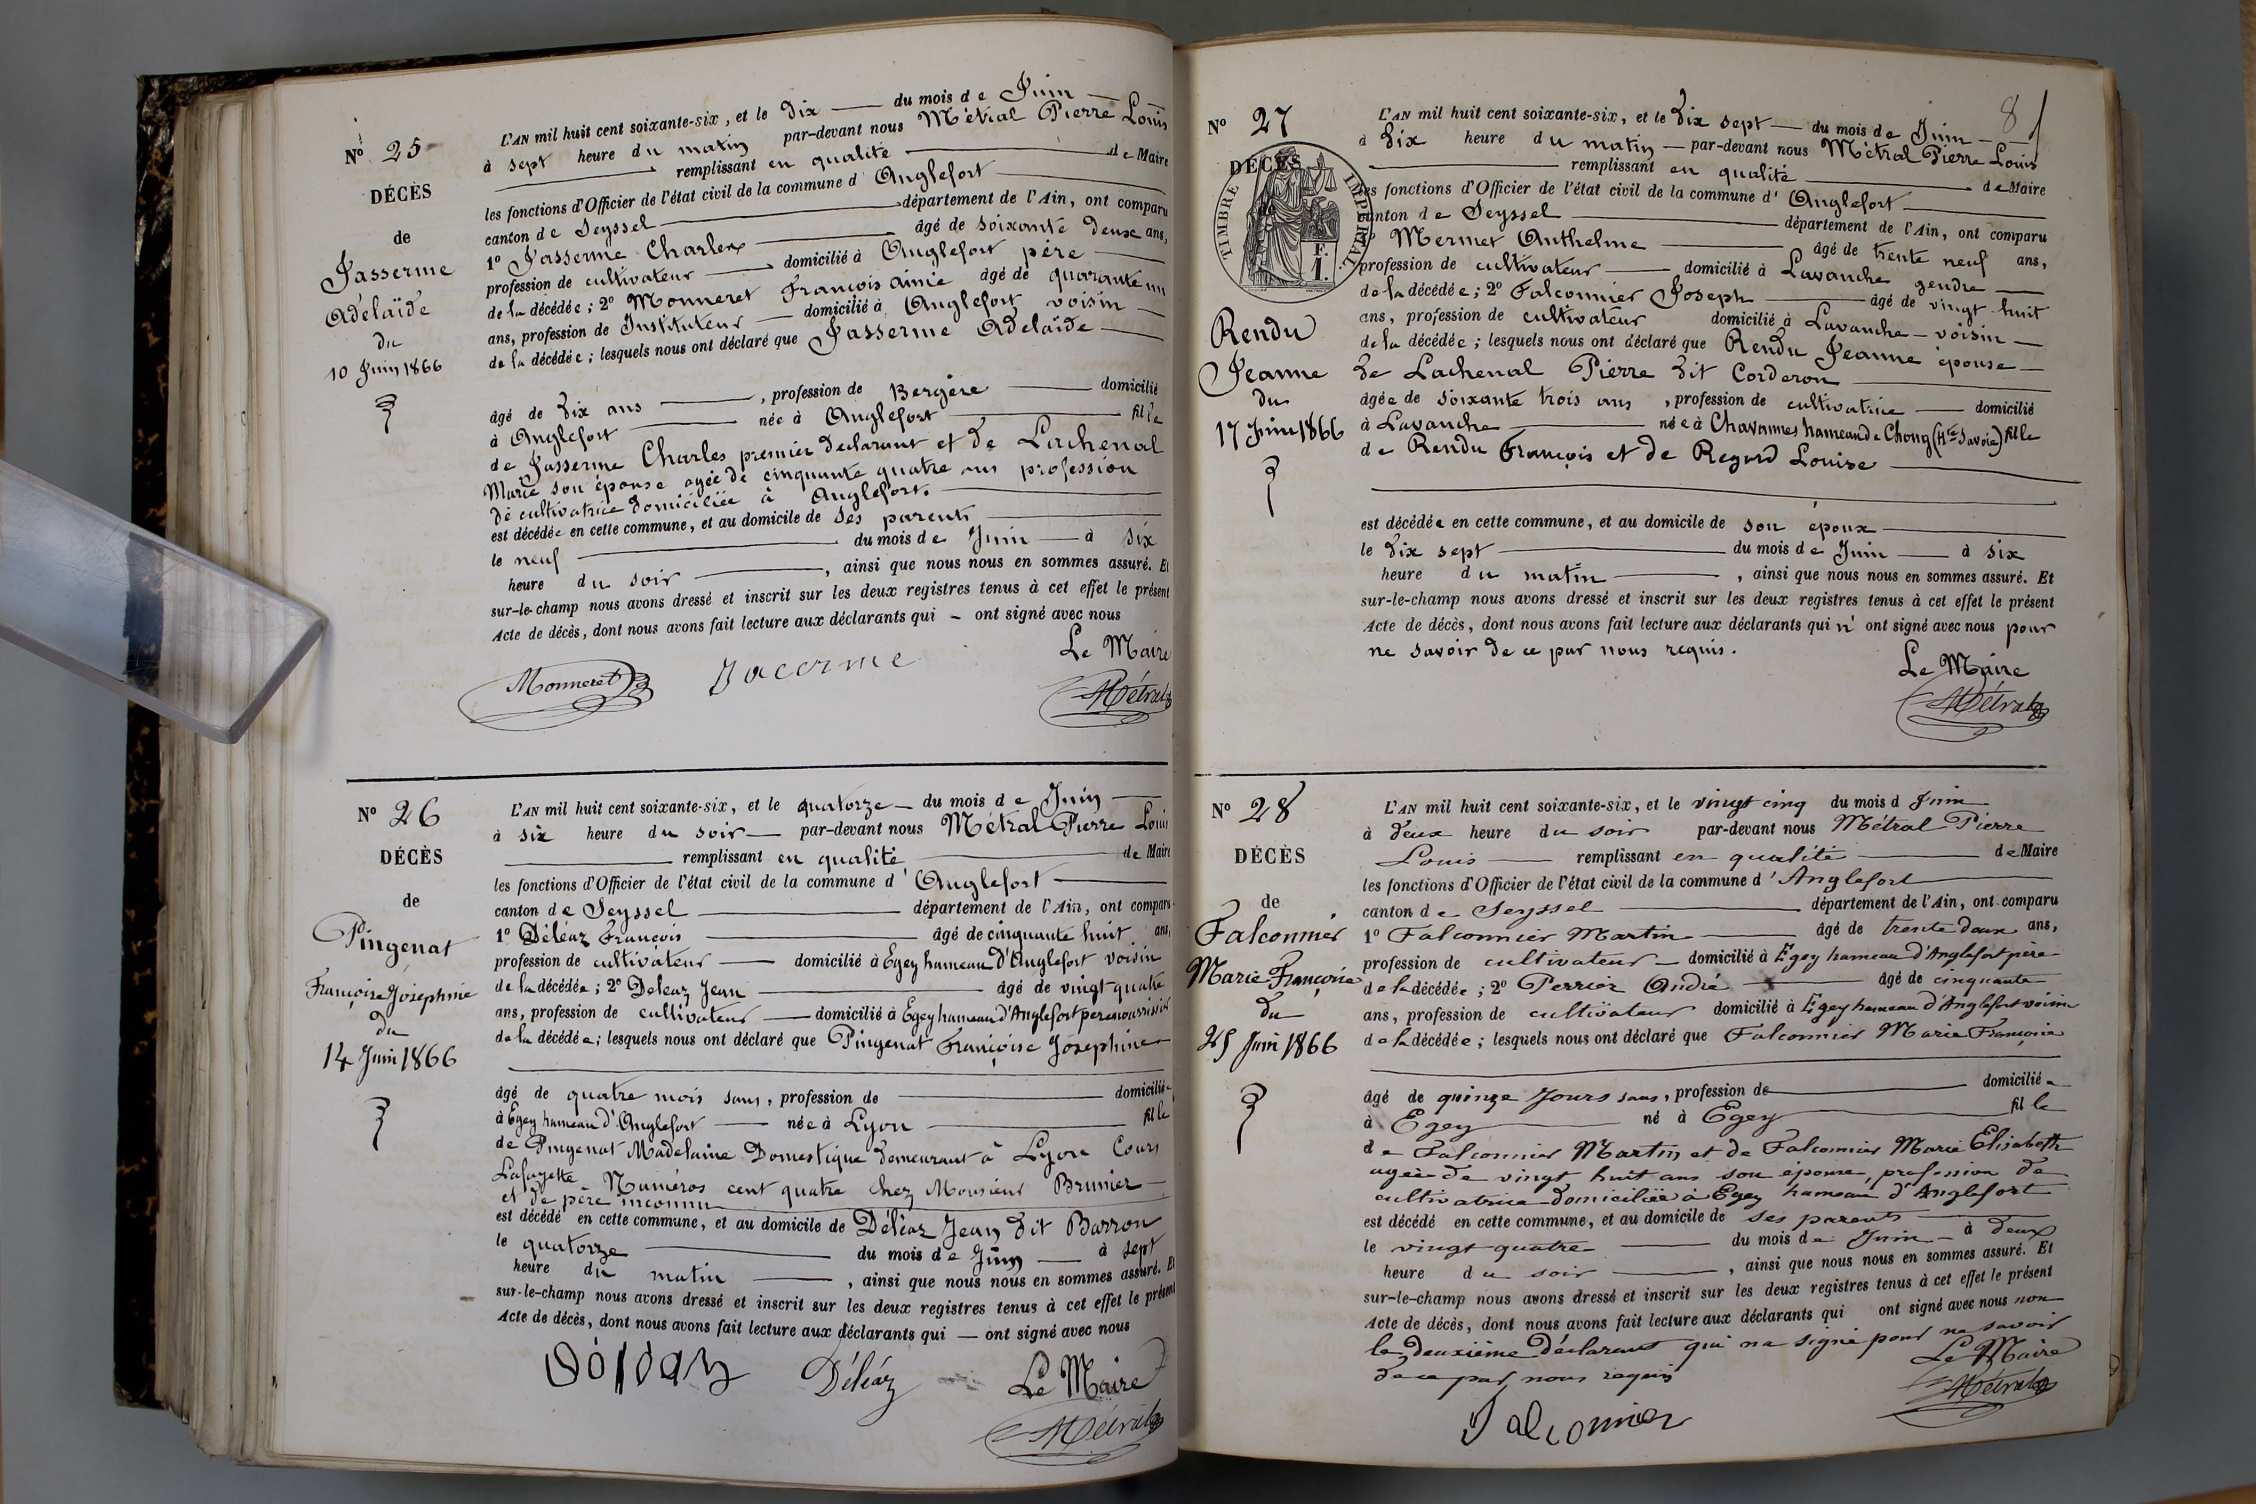 Nº 25
DÉCÈS
de
Jasserme
Adélaïde
du
10 Juin 1866
L'AN mil huit cent soixante-six, et le dix du mois de Juin
à sept heure du matin par-devant nous Métral Pierre Louis
remplissant en qualité de Maire
les fonctions d'Officier de l'état civil de la commune d'Anglefort
canton de Seyssel département de l'Ain, ont comparu
1º Jasserme Charles âgé de soixante deux ans,
profession de cultivateur domicilié à Anglefort père
de la décédée; 2º Monneret François ainie âgé de quarante un
ans, profession de Instituteur domicilié à Anglefort voisin
de la décédée; lesquels nous ont déclaré que Jasserme Adélaïde
âgé de dix ans, profession de Bergère domicilié
à Anglefort née à Anglefort fille
de Jasserme Charles premier déclarant et de Lachenal
Marie son épouse agée de cinquante quatre ans profession
de cultivatrice domiciliée à Anglefort.
est décédée en cette commune, et au domicile de ses parents
le neuf du mois de Juin à six
heure du soir, ainsi que nous nous en sommes assuré. Et
sur-le-champ nous avons dressé et inscrit sur les deux registres tenus à cet effet le présent
Acte de décès, dont nous avons fait lecture aux déclarants qui - ont signé avec nous
Le Maire
Monneret Jacerme Métral
Nº 26
DÉCÈS
de
Pingenat
Françoise Joséphine
du
14 Juin 1866
L'AN mil huit cent soixante-six, et le quatorze du mois de Juin
à six heure du soir par-devant nous Métral Pierre Louis
remplissant en qualité de Maire
les fonctions d'Officier de l'état civil de la commune d'Anglefort
canton de Seyssel département de l'Ain, ont comparu
1º Déléaz François âgé de cinquante huit ans,
profession de cultivateur domicilié à Egey hameau d'Anglefort voisin
de la décédée; 2º Deleaz Jean âgé de vingt quatre
ans, profession de cultivateur domicilié à Egey hameau d'Anglefort pere nourrissier
de la décédée; lesquels nous ont déclaré que Pingenat Françoise Joséphine
âgé de quatre mois sans, profession de domiciliée
à Egey hameau d'Anglefort née à Lyon fille
de Pingenat Madelaine Domestique demeurant à Lyon Cours
Lafayette Numéros cent quatre chez Monsieur Brunier
et de père inconnu
est décédé en cette commune, et au domicile de Déléaz Jean dit Barron
le quatorze du mois de Juin à sept
heure du matin, ainsi que nous nous en sommes assuré. Et
sur-le-champ nous avons dressé et inscrit sur les deux registres tenus à cet effet le présent
Acte de décès, dont nous avons fait lecture aux déclarants qui — ont signé avec nous
Déléaz Le Maire
Métral
8
Nº 27
DÉCÈS
TIMBRE IMPÉRIAL
F.
1.
Rendu
Jeanne
du
17 Juin 1866
L'AN mil huit cent soixante-six, et le dix sept du mois de Juin
à dix heure du matin par-devant nous Métral Pierre Louis
remplissant en qualité de Maire
les fonctions d'Officier de l'état civil de la commune d'Anglefort
canton de Seyssel département de l'Ain, ont comparu
Mermet Anthelme âgé de trente neuf ans,
profession de cultivateur domicilié à Lavanche gendre
de la décédée; 2º Falconnier Joseph âgé de vingt huit
ans, profession de cultivateur domicilié à Lavanche voisin
de la décédée; lesquels nous ont déclaré que Rendu Jeanne épouse
de Lachenal Pierre dit Corderon
âgée de soixante trois ans, profession de cultivatrice domicilié
à Lavanche née à Chavannes hameau de (Hte Savoie) fille
de Rendu François et de Regard Louise
est décédée en cette commune, et au domicile de son époux
le dix sept du mois de Juin à six
heure du matin, ainsi que nous nous en sommes assuré. Et
sur-le-champ nous avons dressé et inscrit sur les deux registres tenus à cet effet le présent
Acte de décès, dont nous avons fait lecture aux déclarants qui n' ont signé avec nous pour
ne savoir de ce par nous requis.
Le Maire
Métral
Nº 28
DÉCÈS
de
Falconnier
Marie Françoise
du
25 Juin 1866
L'AN mil huit cent soixante-six, et le vingt cinq du mois d Juin
à deux heure du soir par-devant nous Métral Pierre
Louis remplissant en qualité de Maire
les fonctions d'Officier de l'état civil de la commune d'Anglefort
canton de Seyssel département de l'Ain, ont comparu
1º Falconnier Martin âgé de trente deux ans,
profession de cultivateur domicilié à Egey hameau d'Anglefort père
de la décédée; 2º Perrier André âgé de cinquante
ans, profession de cultivateur domicilié à Egey hameau d'Anglefort voisin
de la décédée; lesquels nous ont déclaré que Falconnier Marie Françoise
âgé de quinze Jours sans, profession de domiciliée
à Egey né à Egey fille
de Falconnier Martin et de Falconnier Marie Elisabeth
agée de vingt huit ans son épouse, profession de
cultivatrice domiciliée à Egey hameau d'Anglefort
est décédé en cette commune, et au domicile de ses parents
le vingt quatre du mois de Juin à deux
heure du soir, ainsi que nous nous en sommes assuré. Et
sur-le-champ nous avons dressé et inscrit sur les deux registres tenus à cet effet le présent
Acte de décès, dont nous avons fait lecture aux déclarants qui ont signé avec nous non
le deuxième déclarant qui na signé pour ne savoir
de ce par nous requis
Le Maire
Métral
Falconnier